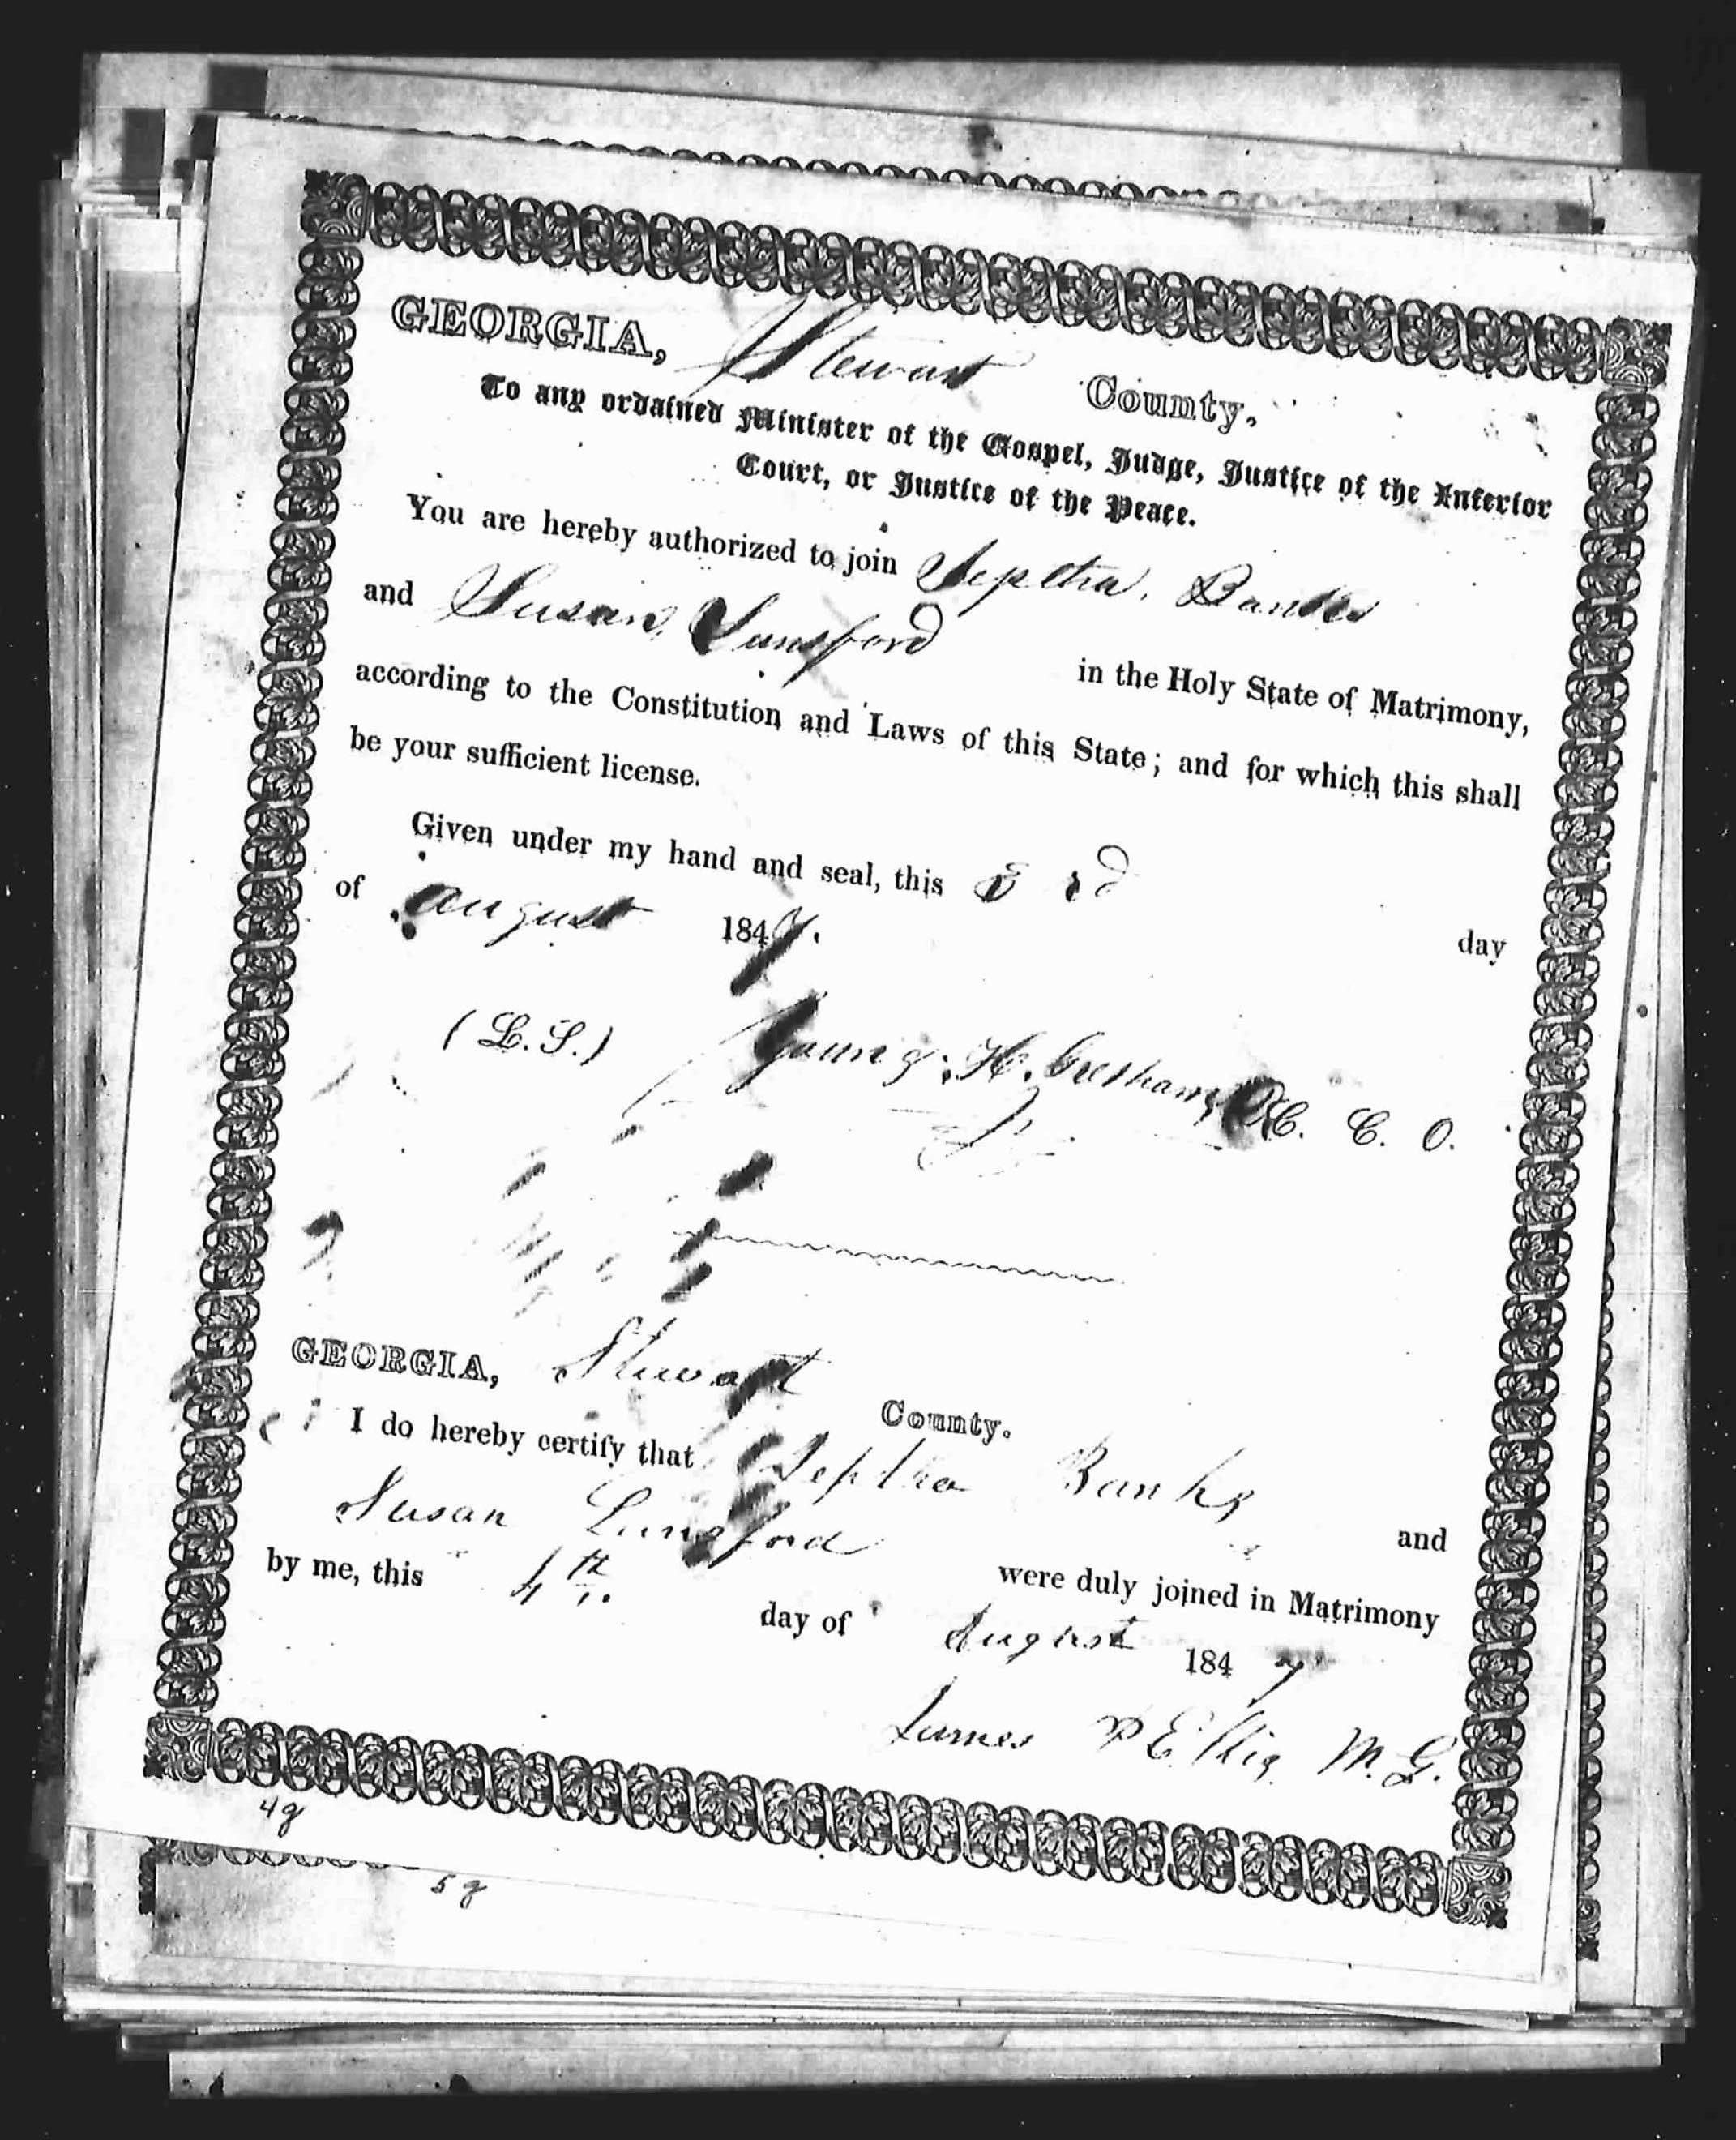 GEORGIA, Stewart County.
To any ordained Minister of the Gospel, Judge, Justice of the Inferior
Court, or Justice of the Peace.
You are hereby authorized to join Jeptha Banks
and Susan Lunsford in the Holy State of Matrimony,
according to the Constitution and Laws of this State; and for which this shall
be your sufficient license.
Given under my hand and seal, this 3rd day
of august 1847.
(L.S.) Young. H. Gresham, C. C. O.
GEORGIA, Stewart County.
I do hereby certify that Jeptha Banks and
Susan Lunsford were duly joined in Matrimony
by me, this 4th. day of August 1847
James Ellis M. G.
4g
5g